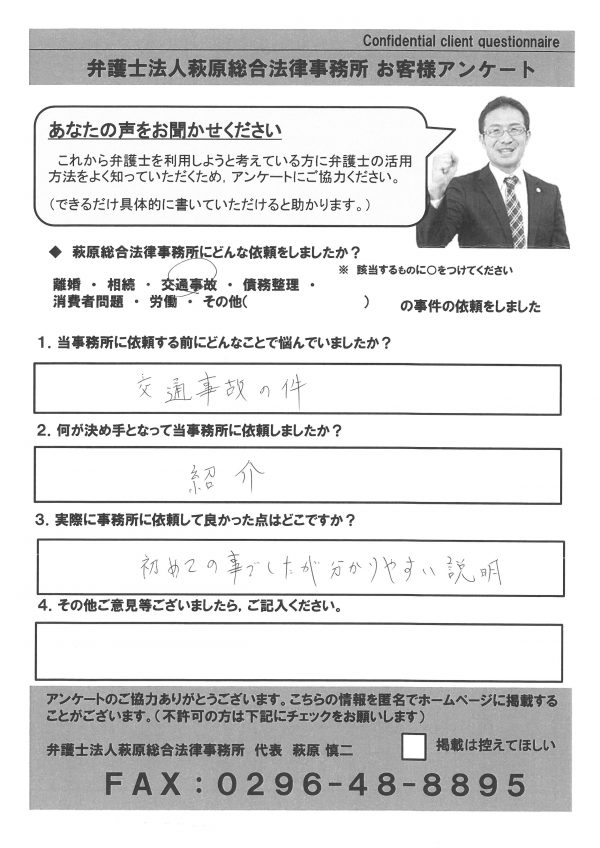 Confidential client questionnaire
弁護士法人萩原総合法律事務所 お客様アンケート
あなたの声をお聞かせください
これから弁護士を利用しようと考えている方に弁護士の活用
方法をよく知っていただくため,アンケートにご協力ください。
(できるだけ具体的に書いていただけると助かります。)
◆ 萩原総合法律事務所にどんな依頼をしましたか?
※ 該当するものに○をつけてください
離婚 ・ 相続 ・ 交通事故 ・ 債務整理 ・
消費者問題 ・ 労働 ・ その他( ) の事件の依頼をしました
1.当事務所に依頼する前にどんなことで悩んでいましたか?
交通事故の件
2.何が決め手となって当事務所に依頼しましたか?
紹介
3.実際に事務所に依頼して良かった点はどこですか?
初めての事でしたが分かりやすい説明
4.その他ご意見等ございましたら,ご記入ください。
アンケートのご協力ありがとうございます。こちらの情報を匿名でホームページに掲載する
ことがございます。(不許可の方は下記にチェックをお願いします)
弁護士法人萩原総合法律事務所 代表 萩原 慎二
掲載は控えてほしい
FAX:0296-48-8895